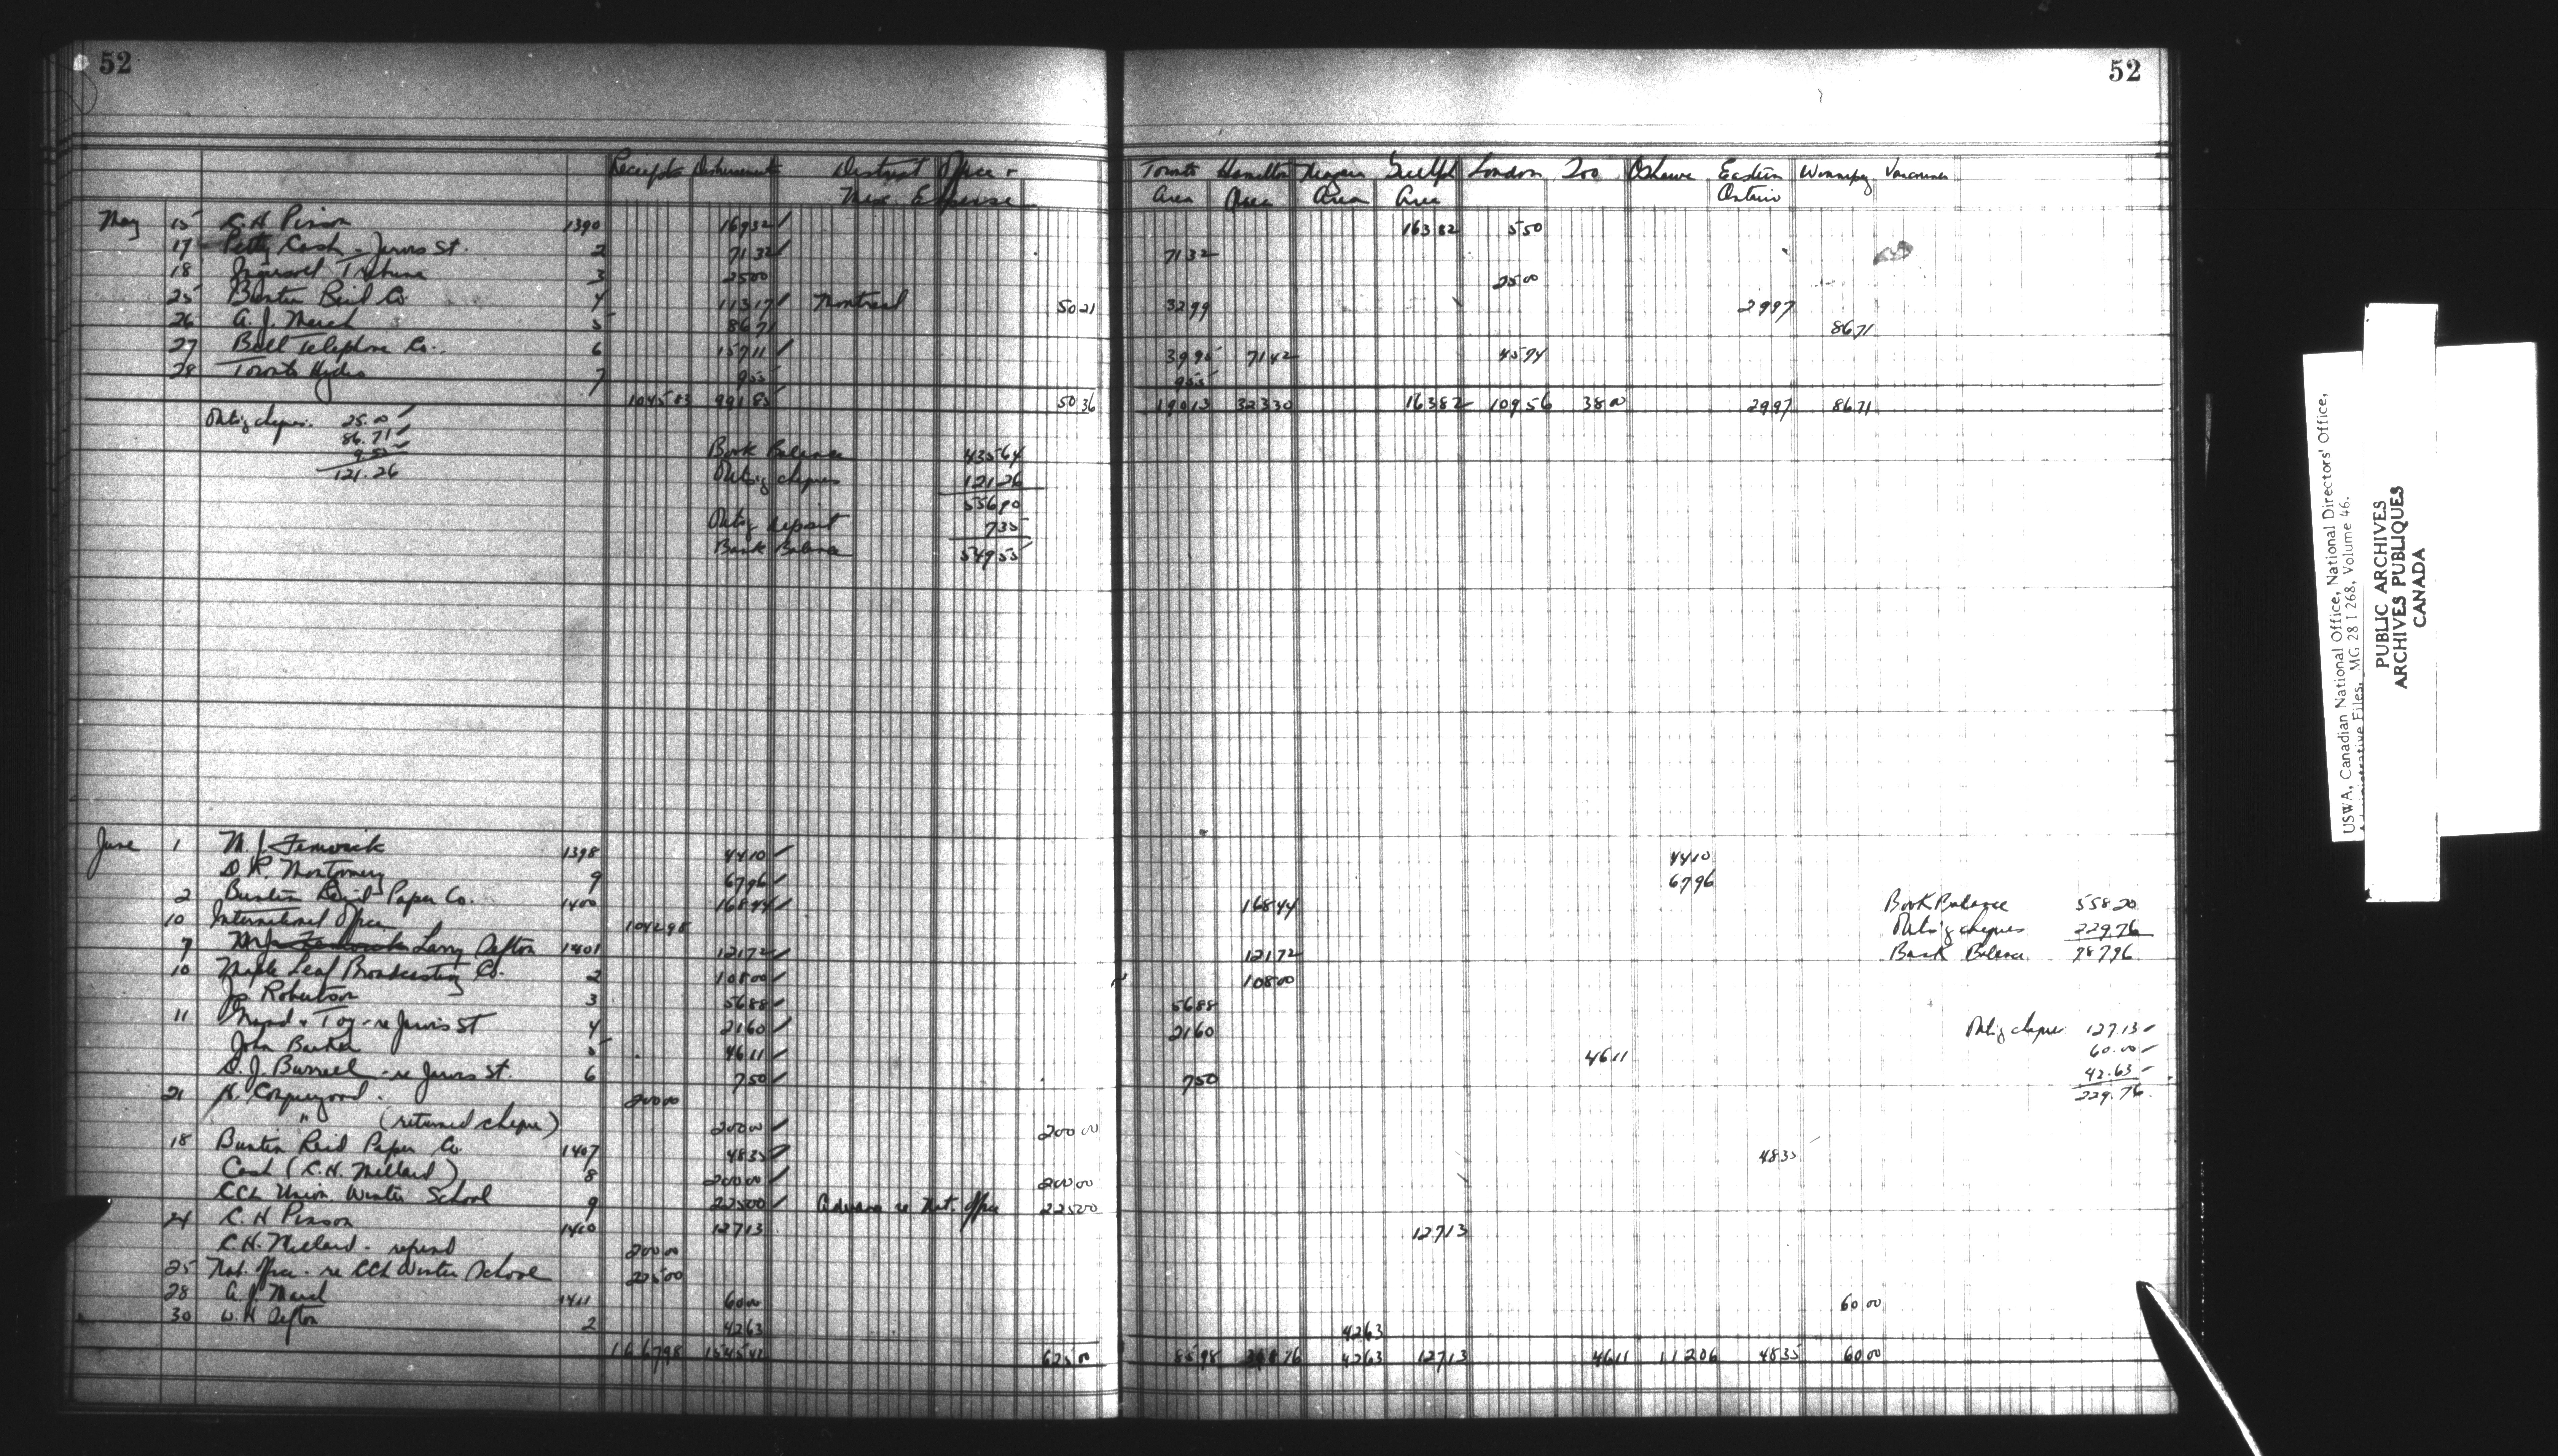 52
52
Receipts Disbursements District Office +
Misc. Expense
Toronto Area Hamilton Area Niagara Area Guelph Area London Soo Oshawa Eastern Ontario Winnipeg Vancouver
May 15 C.H. Pinson 1390 16932 16382 550
17 Petty Cash - Jarvis St. 2 7132 7132
18 Ingersoll Tribune 3 2500 2500
25 Buntin Reid Co 4 11317 Montreal 5021 3299 2997
26 A.J. March 5 8671 8671
27 Bell Telephone Co. 6 15711 3995 7142 4574
28 Toronto Hydro 7 955 955
104583 99185 5036 19013 32330 16382 10956 3800 2997 8671
Outs'g cheques. 25.00
86.71
9.55
121.26
Book Balance 43564
Outs'g cheques 12126
55690
Outs'g deposit 735
Bank Balance 54955
June 1 M.J. Fenwick 1398 4410 4410
D.R. Montgomery 9 6796 6796
2 Buntin Reid Paper Co. 1400 16844 16844
10 International Office 104298
7 Larry Sefton 1401 12172 12172
10 Maple Leaf Broadcasting Co. 2 10800 10800
Robertson 3 5688 5688
11 Grand & Toy - re Jarvis St 4 2160 2160
John Barker 5 4611 4611
D.J. Burrell - re Jarvis St. 6 750 750
21 20000
" (returned cheque) 20000 20000
18 Buntin Reid Paper Co 1407 4835 4835
Cash (C.H. Millard) 8 20000 20000
CCL Union Winter School 9 22500 Advance re Nat. Office 22500
24 C.H. Pinson 1410 12713 12713
C.H. Millard - refund 20000
25 Nat. Office - re CCL Winter School 22500
28 A.J. March 1411 6000 6000
30 W.H. Sefton 2 4263 4263
166798 154542 62500 8598 4263 12713 4611 11206 4835 6000
Book Balance 55820
Outs'g cheques 229.76
Bank Balance 78796
Outs'g cheques 127.13
60.00
42.63
229.76
USWA, Canadian National Office, National Directors' Office,
Administrative Files, MG 28 I 268, Volume 46.
PUBLIC ARCHIVES
ARCHIVES PUBLIQUES
CANADA